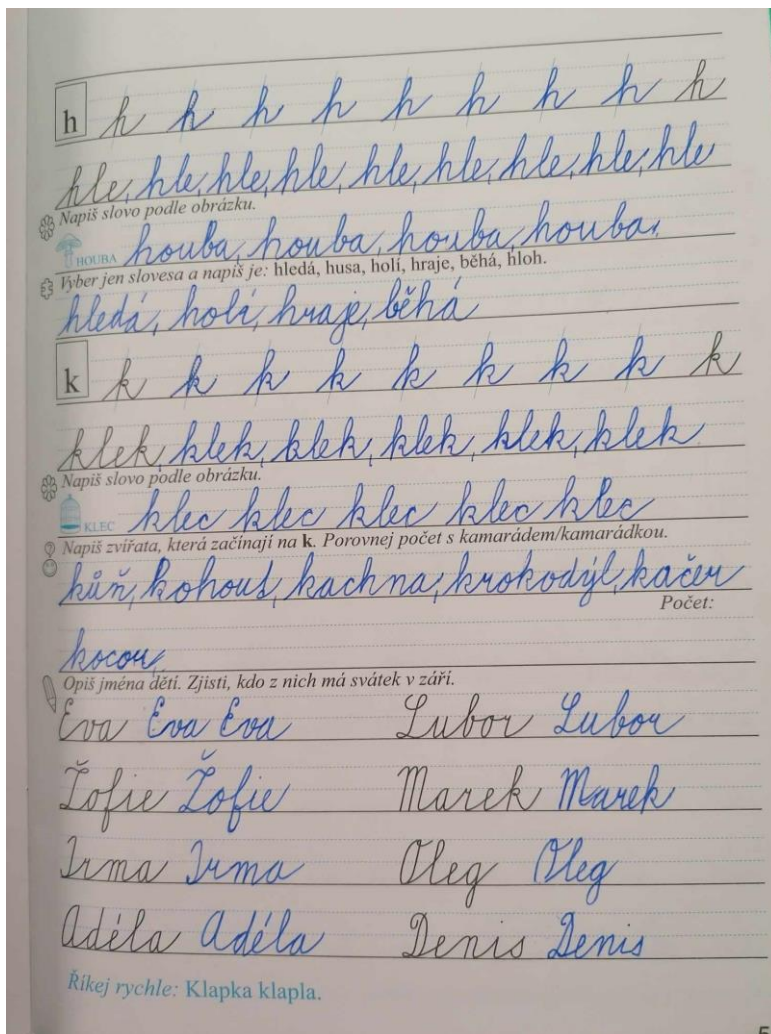 h h h h h h h h h h
hle, hle, hle, hle, hle, hle, hle, hle, hle
Napiš slovo podle obrázku.
HOUBA houba, houba, houba, houba,
Vyber jen slovesa a napiš je: hledá, husa, holí, hraje, běhá, hloh.
hledá, holí, hraje, běhá
k k k k k k k k k k
klek, klek, klek, klek, klek, klek
Napiš slovo podle obrázku.
KLEC klec klec klec klec klec
Napiš zvířata, která začínají na k. Porovnej počet s kamarádem/kamarádkou.
kůň, kohout, kachna, krokodýl, kačer
Počet:
kocour,
Opiš jména dětí. Zjisti, kdo z nich má svátek v září.
Eva Eva Eva Lubor Lubor
Žofie Žofie Marek Marek
Irma Irma Oleg Oleg
Adéla Adéla Denis Denis
Říkej rychle: Klapka klapla.